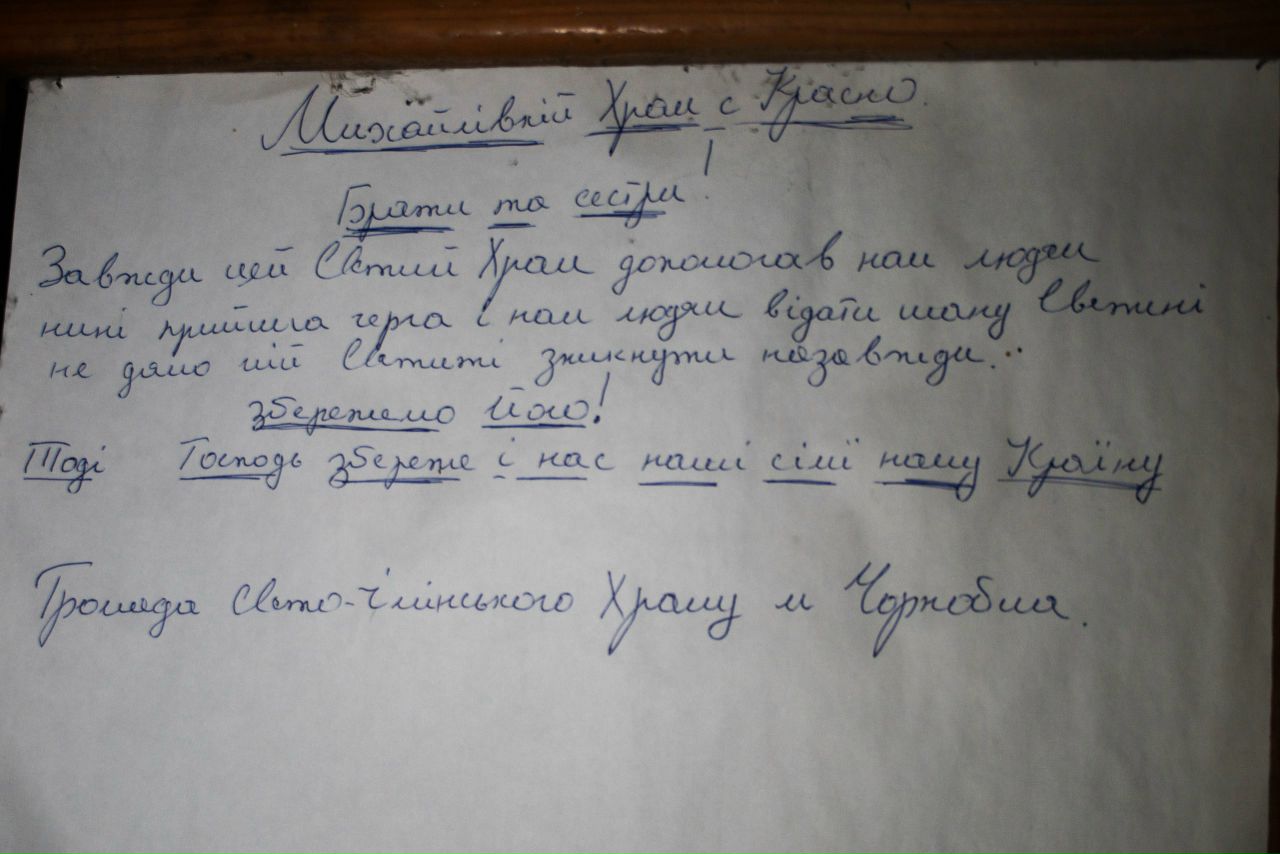 Михайлівкій Храм с Красно.
Брати та сестри!
Завжди цей Святий Храм допомогав нам людям
нині прийшла черга і нам людям відати шану Святині
не дамо цій Святині зникнути назавжди...
збережемо Його!
Тоді Господь збереже і нас наші сімї нашу Країну
Громада Свято-Іллінського Храму м Чорнобиля.